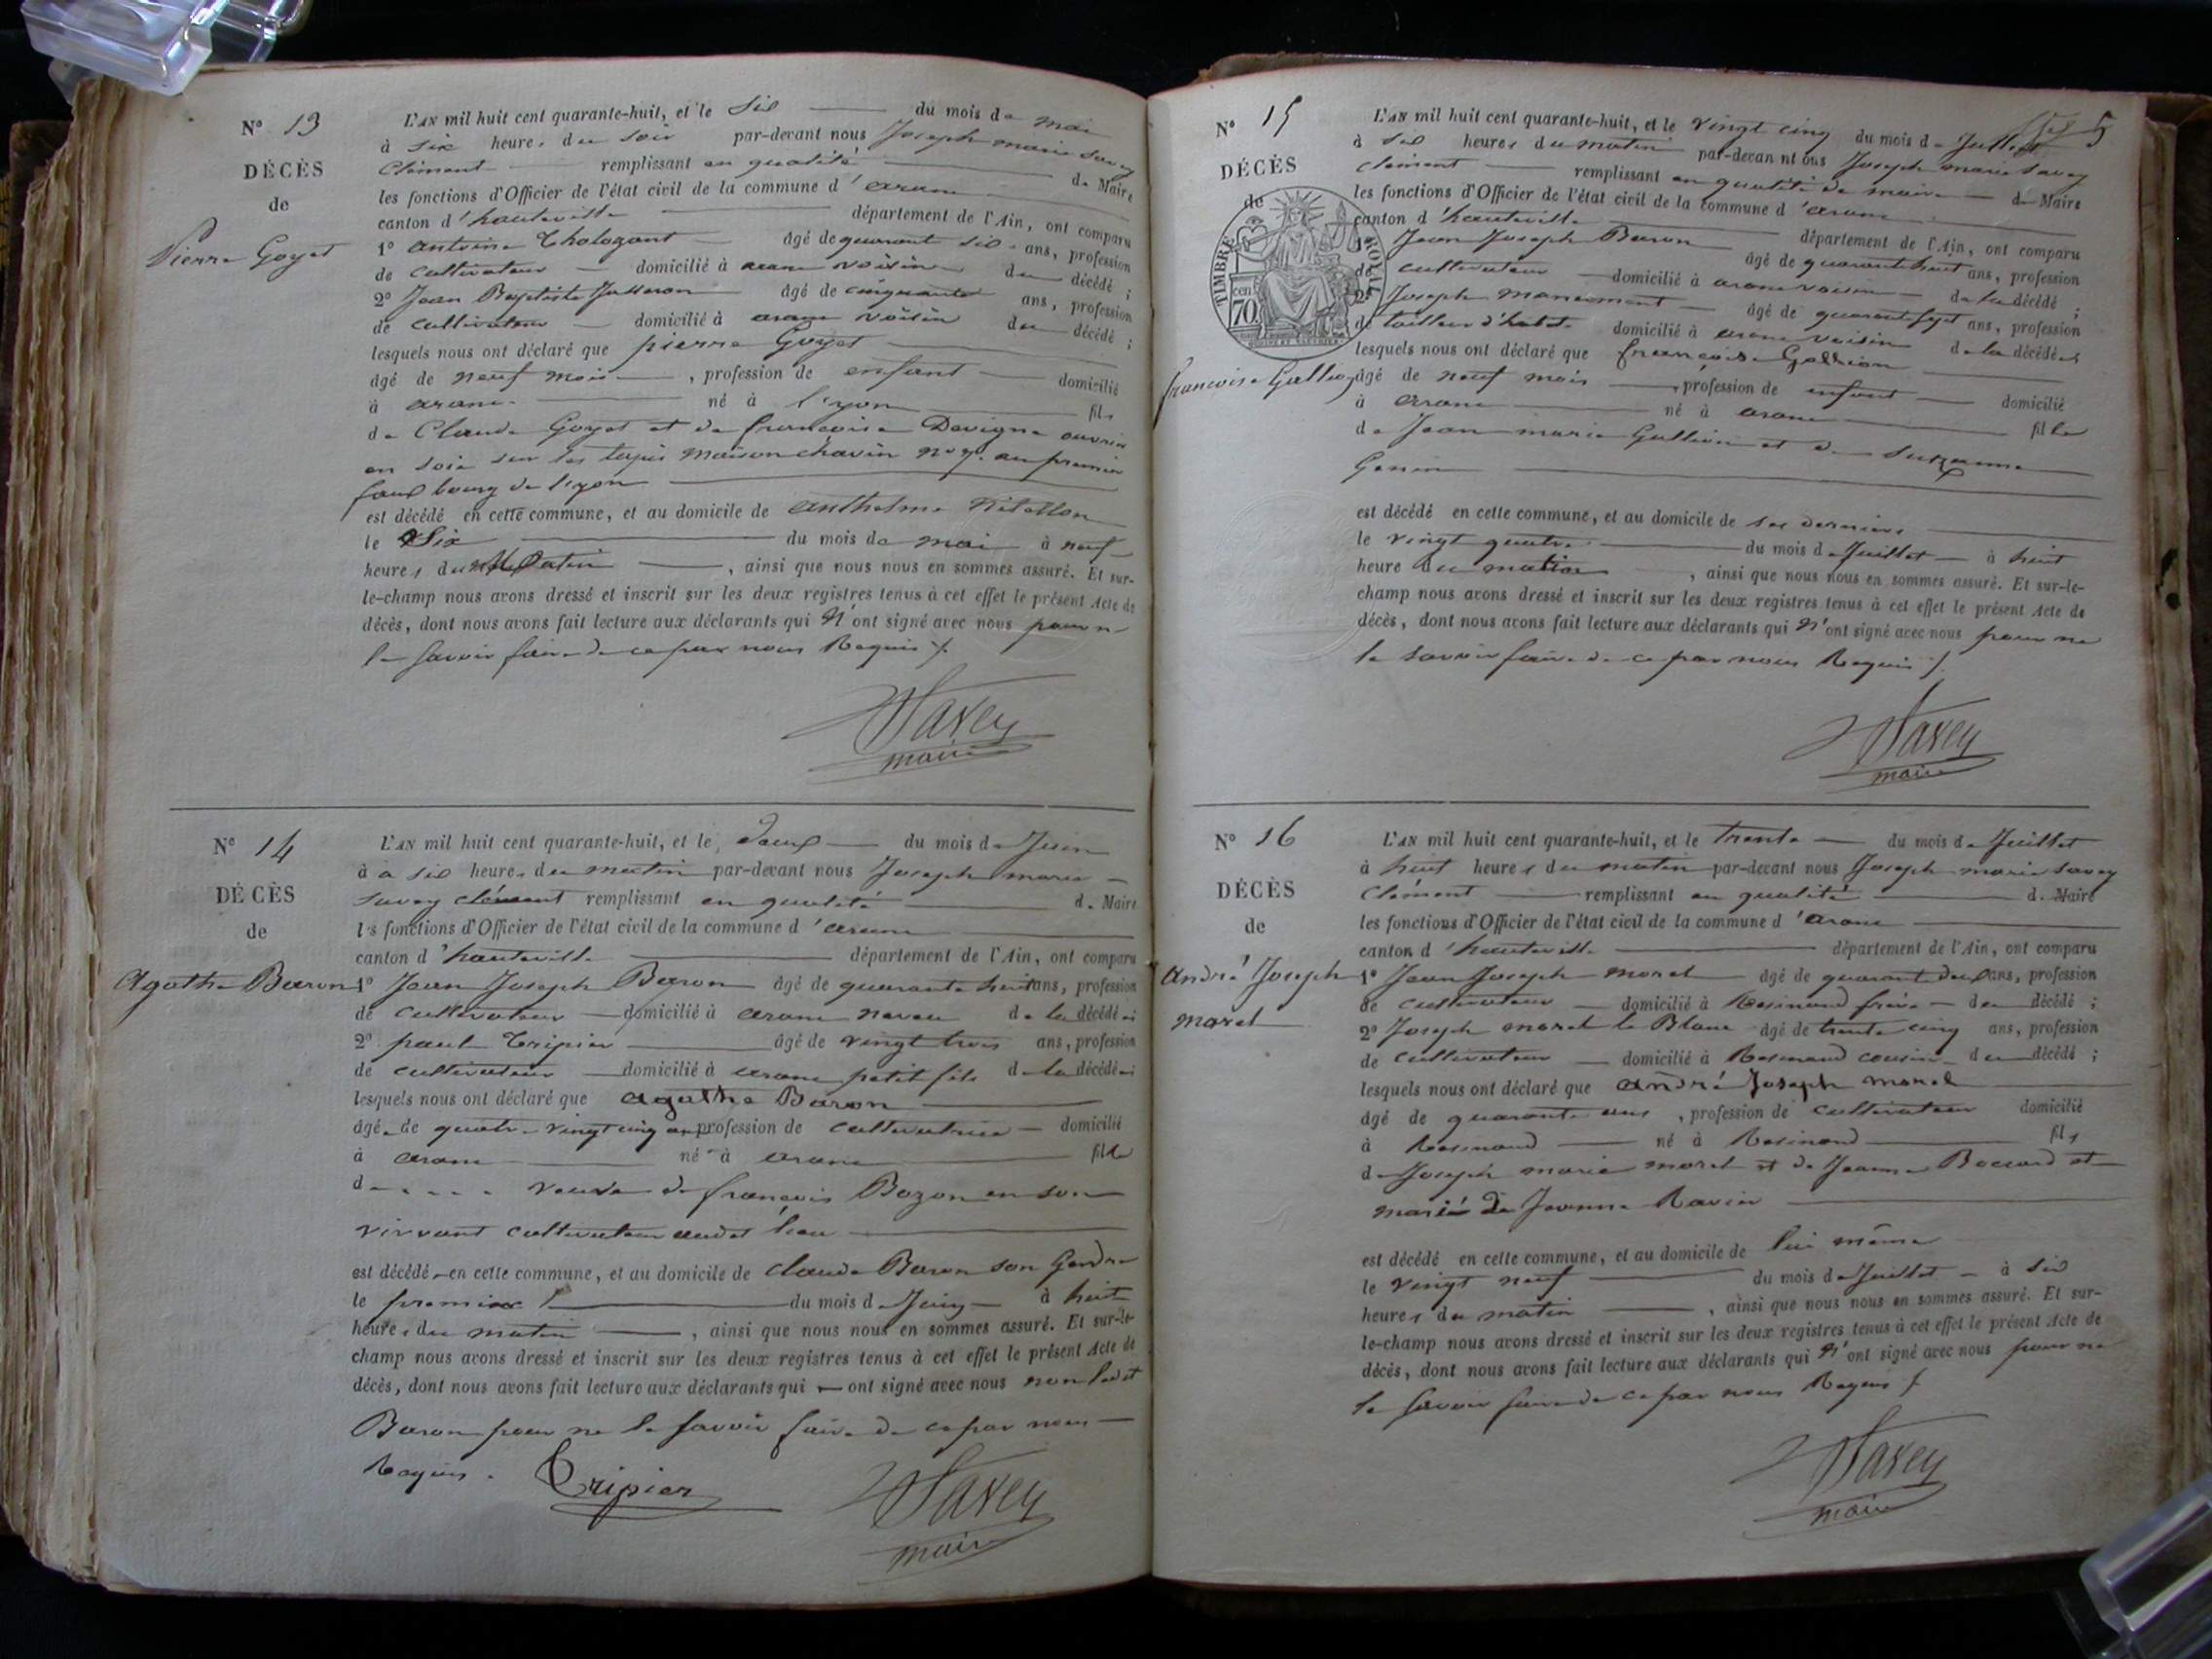 N° 13
DÉCÈS
de
Pierre Goyet
L'AN mil huit cent quarante-huit, et le Six du mois de mai
à six heures du soir par-devant nous Joseph marie Savey
Clément remplissant en qualité de Maire
les fonctions d'Officier de l'état civil de la commune d'aranc
canton d'hauteville département de l'Ain, ont comparu
1° antoine âgé de quarant six ans, profession
de cultivateur domicilié à aranc voisin du décédé ;
2° Jean Baptiste âgé de cinquante ans, profession
de cultivateur domicilié à aranc voisin du décédé ;
lesquels nous ont déclaré que pierre Goyet
âgé de neuf mois , profession de enfant domicilié
à aranc né à lyon fils
de Claude Goyet et de françoise Davigne ouvrier
en soie sur les tapis maison chavin n° 7. au premier
faux bourg de lyon
est décédé en cette commune, et au domicile de anthelme
le Six du mois de mai à neuf
heures du Matin , ainsi que nous nous en sommes assuré. Et sur-
le-champ nous avons dressé et inscrit sur les deux registres tenus à cet effet le présent Acte de
décès, dont nous avons fait lecture aux déclarants qui N'ont signé avec nous pour ne
le savoir faire de ce par nous Requis /.
Savey
maire
N° 14
DÉCÈS
de
Agathe Baron
L'AN mil huit cent quarante-huit, et le deux du mois de Juin
à a six heures du matin par-devant nous Joseph marie
savey clément remplissant en qualité de Maire
les fonctions d'Officier de l'état civil de la commune d'aranc
canton d'hauteville département de l'Ain, ont comparu
1° Jean Joseph Baron âgé de quarante huit ans, profession
de cultivateur domicilié à aranc neveu de la décédée ;
2° paul Tripier âgé de vingt trois ans, profession
de cultivateur domicilié à aranc petit fils de la décédée ;
lesquels nous ont déclaré que agathe Baron
âgée de quatre vingt cinq ans profession de cultivatrice domicilié
à aranc né à aranc fille
de . . . . veuve de françois Bozon en son
vivant cultivateur audit lieu
est décédé en cette commune, et au domicile de claude Baron son Gendre
le premier du mois de Juin à huit
heures du matin , ainsi que nous nous en sommes assuré. Et sur-le-
champ nous avons dressé et inscrit sur les deux registres tenus à cet effet le présent Acte de
décès, dont nous avons fait lecture aux déclarants qui ont signé avec nous non ledit
Baron pour ne le savoir faire de ce par nous
Requis.
Tripier
Savey
maire
5
N° 15
DÉCÈS
de
TIMBRE ROYAL
cen
70
françoise Gallion
L'AN mil huit cent quarante-huit, et le vingt cinq du mois de Juillet
à six heures du matin par-devan nt ous Joseph marie savey
clément remplissant en qualité de maire de Maire
les fonctions d'Officier de l'état civil de la commune d'aranc
canton d'hauteville département de l'Ain, ont comparu
1° Jean Joseph Baron âgé de quarante huit ans, profession
de cultivateur domicilié à aranc voisin de la décédé ;
2° Joseph âgé de quarante sept ans, profession
de tailleur d'habit domicilié à aranc voisin de la décédée ;
lesquels nous ont déclaré que françoise Gallion
âgé de neuf mois , profession de enfant domicilié
à aranc né à aranc fille
de Jean marie Gallion et de Suzanne
Genin
est décédé en cette commune, et au domicile de ses derniers
le vingt quatre du mois de Juillet à huit
heure du matin , ainsi que nous nous en sommes assuré. Et sur-le-
champ nous avons dressé et inscrit sur les deux registres tenus à cet effet le présent Acte de
décès, dont nous avons fait lecture aux déclarants qui N'ont signé avec nous pour ne
le savoir faire de ce par nous Requis /.
Savey
maire
N° 16
DÉCÈS
de
André Joseph
moret
L'AN mil huit cent quarante-huit, et le trente du mois de Juillet
à huit heures du matin par-devant nous Joseph marie savey
Clément remplissant en qualité de Maire
les fonctions d'Officier de l'état civil de la commune d'aranc
canton d'hauteville département de l'Ain, ont comparu
1° Jean Joseph moret âgé de quarant deux ans, profession
de cultivateur domicilié à Resinand frère du décédé ;
2° Joseph moret le Blanc âgé de trente cinq ans, profession
de cultivateur domicilié à Resinand cousin du décédé ;
lesquels nous ont déclaré que andré Joseph moret
âgé de quarante ans , profession de cultivateur domicilié
à Resinand né à Resinand fils
de Joseph marie moret et de Jeanne Boccard et
marié de Jeanne Ravier
est décédé en cette commune, et au domicile de lui même
le vingt neuf du mois de Juillet à six
heures du matin , ainsi que nous nous en sommes assuré. Et sur-
le-champ nous avons dressé et inscrit sur les deux registres tenus à cet effet le présent Acte de
décès, dont nous avons fait lecture aux déclarants qui N'ont signé avec nous pour ne
le savoir faire de ce par nous Requis /.
Savey
maire